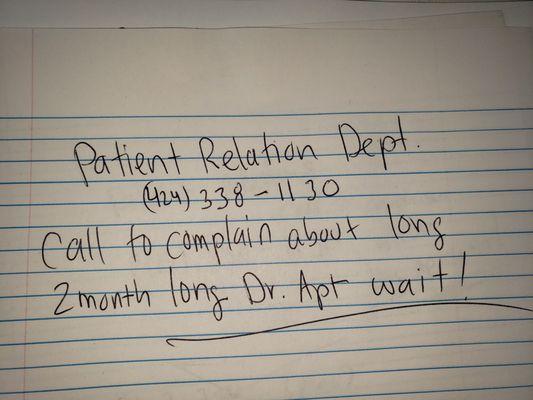 Patient Relation Dept.
(424) 338-1130
Call to complain about long
2month long Dr. Apt wait!